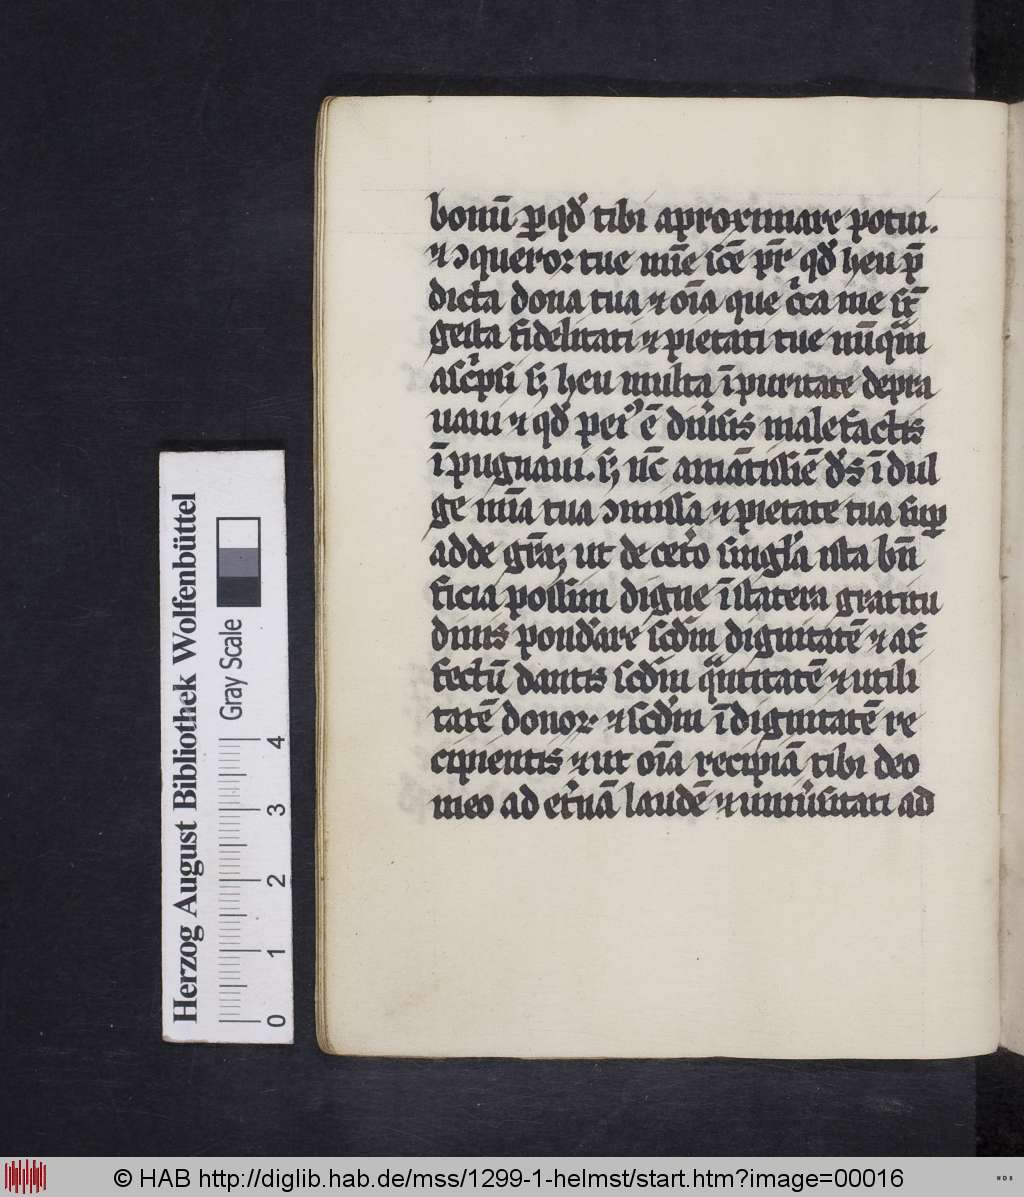 bonū ꝑqd̛ tibi aproximare potui.
⁊ ꝯqueror tue mīe sc̄e pr̄ qd̛ heu p̄
dicta dona tua ⁊ oīa que cͥca me
gesta fidelitati ⁊ pietati tue nūqͣm
ascͥpsi sꝫ heu multa īpuritate depra
uaui ⁊ qd̛ peiꝰ ē diưsis malefactis
īpugnaui. sꝫ nc̄ amātissiē ds̛ īdul
ge mīa tua ꝯmissa ⁊ pietate tua suꝑ
adde gr̄aꝫ ut de cet̛o singl̛a ista bn̄
ficia possim digne ī statera gratitu
dinis pond̛are scd̛m dignitatē ⁊ af
fectū dantis scd̛m qͣntitatē ⁊ utili
tatē donoꝝ ⁊ scd̛m īdignitatē re
cipientis ⁊ ut oīa recipiā tibi deo
meo ad et̛nā laudē ⁊ uniưsitati ad
Herzog August Bibliothek Wolfenbüttel
Gray Scale
0 1 2 3 4
© HAB http://diglib.hab.de/mss/1299-1-helmst/start.htm?image=00016